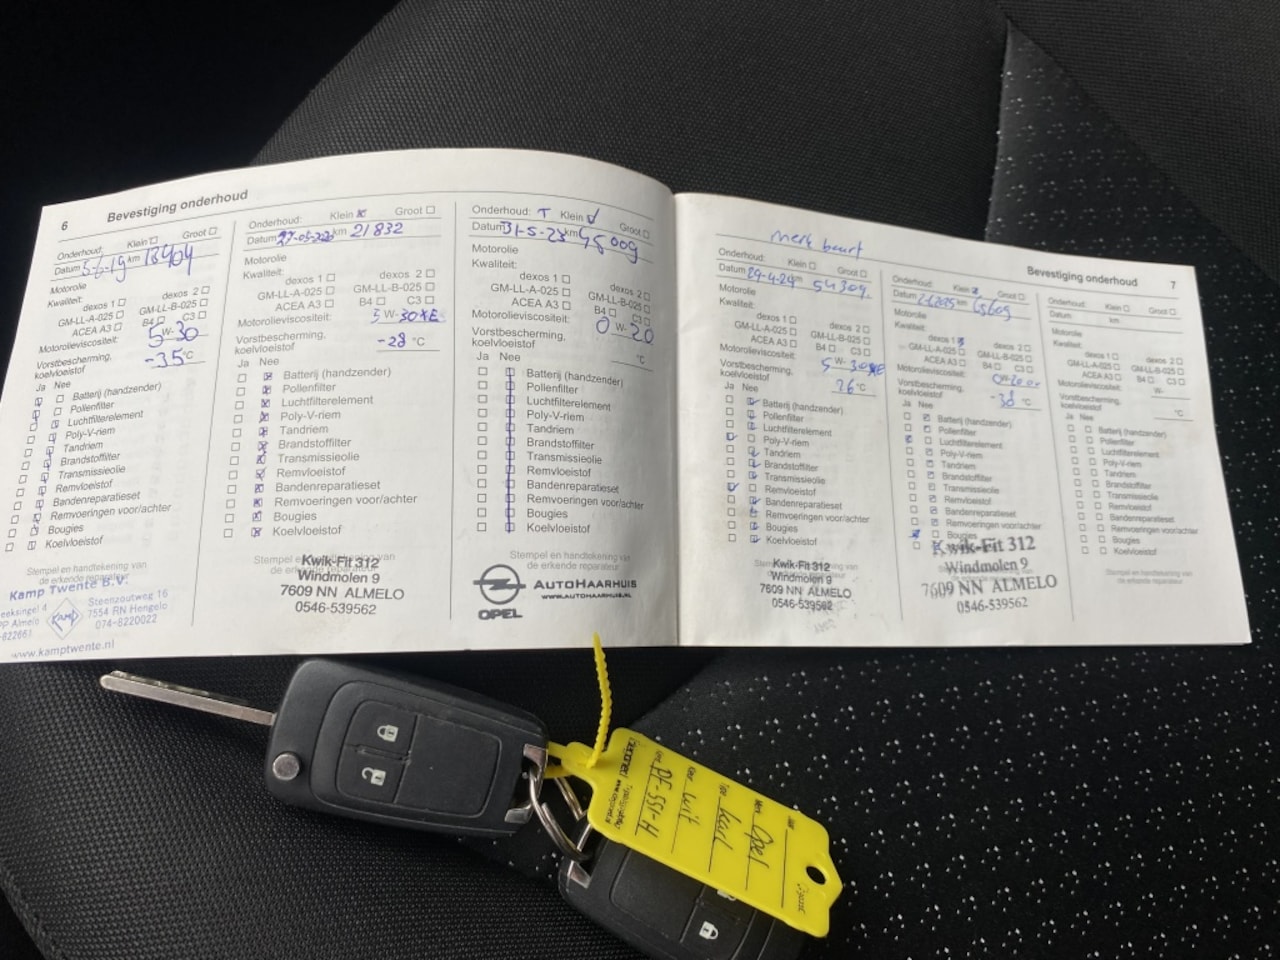 6 Bevestiging onderhoud
Onderhoud: Klein Groot
Datum 5-6-19 km 13904
Motorolie
Kwaliteit:
dexos 1 dexos 2
GM-LL-A-025 GM-LL-B-025
ACEA A3 B4 C3
Motorolieviscositeit: 5 W- 30
Vorstbescherming,
koelvloeistof -35 °C
Ja Nee
Batterij (handzender)
Pollenfilter
Luchtfilterelement
Poly-V-riem
Tandriem
Brandstoffilter
Transmissieolie
Remvloeistof
Bandenreparatieset
Remvoeringen voor/achter
Bougies
Koelvloeistof
Stempel en handtekening van
de erkende reparateur
Kamp Twente B.V.
Steenzoutweg 16
7554 RN Hengelo
074-8220022
KAMP
www.kamptwente.nl
Onderhoud: Klein Groot
Datum km 21832
Motorolie
Kwaliteit:
dexos 1 dexos 2
GM-LL-A-025 GM-LL-B-025
ACEA A3 B4 C3
Motorolieviscositeit: 5 W-30
Vorstbescherming,
koelvloeistof -28 °C
Ja Nee
Batterij (handzender)
Pollenfilter
Luchtfilterelement
Poly-V-riem
Tandriem
Brandstoffilter
Transmissieolie
Remvloeistof
Bandenreparatieset
Remvoeringen voor/achter
Bougies
Koelvloeistof
Stempel en handtekening van
de erkende reparateur
Kwik-Fit 312
Windmolen 9
7609 NN ALMELO
0546-539562
Onderhoud: Klein Groot
Datum 31-5-23 km 45009
Motorolie
Kwaliteit:
dexos 1 dexos 2
GM-LL-A-025 GM-LL-B-025
ACEA A3 B4 C3
Motorolieviscositeit: 0 W- 20
Vorstbescherming,
koelvloeistof °C
Ja Nee
Batterij (handzender)
Pollenfilter
Luchtfilterelement
Poly-V-riem
Tandriem
Brandstoffilter
Transmissieolie
Remvloeistof
Bandenreparatieset
Remvoeringen voor/achter
Bougies
Koelvloeistof
Stempel en handtekening van
de erkende reparateur
OPEL
AUTOHAARHUIS
WWW.AUTOHAARHUIS.NL
Bevestiging onderhoud 7
merk beurt
Onderhoud: Klein Groot
Datum 29-4-24 km 54309
Motorolie
Kwaliteit:
dexos 1 dexos 2
GM-LL-A-025 GM-LL-B-025
ACEA A3 B4 C3
Motorolieviscositeit: 5 W- 30
Vorstbescherming,
koelvloeistof 26 °C
Ja Nee
Batterij (handzender)
Pollenfilter
Luchtfilterelement
Poly-V-riem
Tandriem
Brandstoffilter
Transmissieolie
Remvloeistof
Bandenreparatieset
Remvoeringen voor/achter
Bougies
Koelvloeistof
Kwik-Fit 312
Windmolen 9
7609 NN ALMELO
0546-539562
Onderhoud: Klein Groot
Datum km 65605
Motorolie
Kwaliteit:
dexos 1 dexos 2
GM-LL-A-025 GM-LL-B-025
ACEA A3 B4 C3
Motorolieviscositeit:
Vorstbescherming,
koelvloeistof -38 °C
Ja Nee
Batterij (handzender)
Pollenfilter
Luchtfilterelement
Poly-V-riem
Tandriem
Brandstoffilter
Transmissieolie
Remvloeistof
Bandenreparatieset
Remvoeringen voor/achter
Bougies
Kwik-Fit 312
Windmolen 9
7609 NN ALMELO
0546-539562
Onderhoud: Klein Groot
Datum: km:
Motorolie
Kwaliteit:
dexos 1 dexos 2
GM-LL-A-025 GM-LL-B-025
ACEA A3 B4 C3
Motorolieviscositeit: W-
Vorstbescherming,
koelvloeistof °C
Ja Nee
Batterij (handzender)
Pollenfilter
Luchtfilterelement
Poly-V-riem
Tandriem
Brandstoffilter
Transmissieolie
Remvloeistof
Bandenreparatieset
Remvoeringen voor/achter
Bougies
Koelvloeistof
Stempel en handtekening van
de erkende reparateur
Merk Opel
Type karl
Kleur wit
PF-551-H